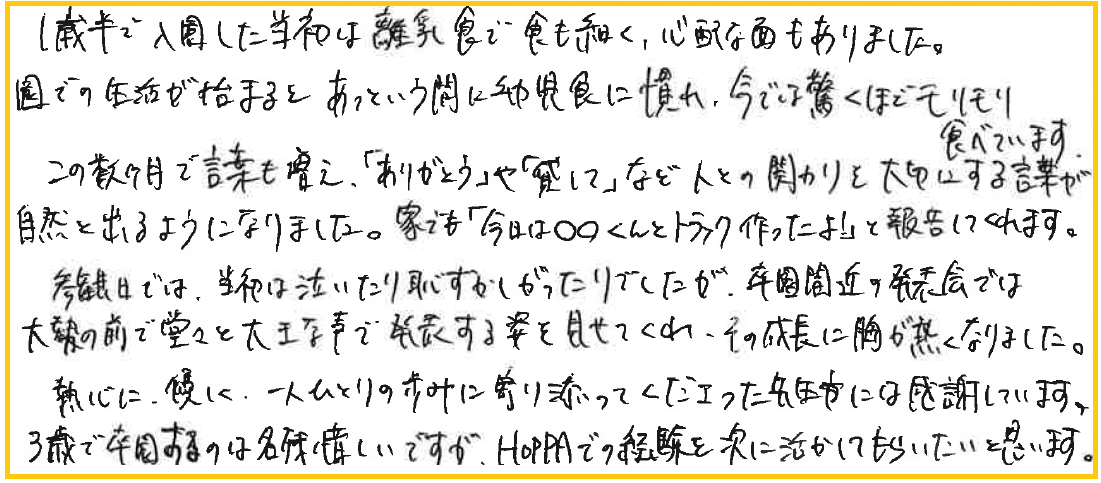 1歳半で入園した当初は離乳食で食も細く、心配な面もありました。
園での生活が始まるとあっという間に幼児食に慣れ、今では驚くほどモリモリ
食べています。
この数ヶ月で言葉も増え、「ありがとう」や「貸して」など人との関わりを大切にする言葉が
自然と出るようになりました。家でも「今日は〇〇くんとトラック作ったよ!」と報告してくれます。
参観日では、当初は泣いたり恥ずかしがったりでしたが、卒園間近の発表会では
大勢の前で堂々と大きな声で発表する姿を見せてくれ、その成長に胸が熱くなりました。
熱心に、優しく、一人ひとりの歩みに寄り添ってくださった先生方には感謝しています。
3歳で卒園するのは名残惜しいですが、HOPPAでの経験を次に活かしてもらいたいと思います。